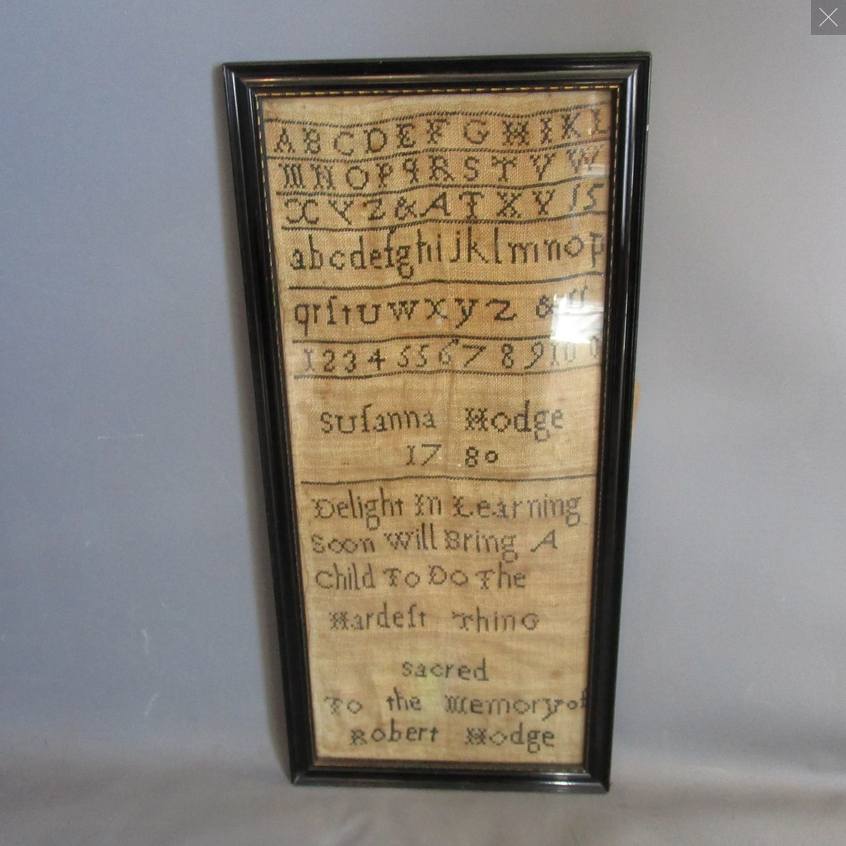 A B C D E F G H I K L
M N O P q R S T V W
X Y Z & A T X Y 15
abcdefghijklmnop
qrſtuwxyz & ſſ
1 2 3 4 5 5 6 7 8 9 10 0
Suſanna Hodge
17 80
Delight In Learning
Soon Will Bring A
Child To Do The
Hardeſt Thing
Sacred
To the Memory of
Robert Hodge